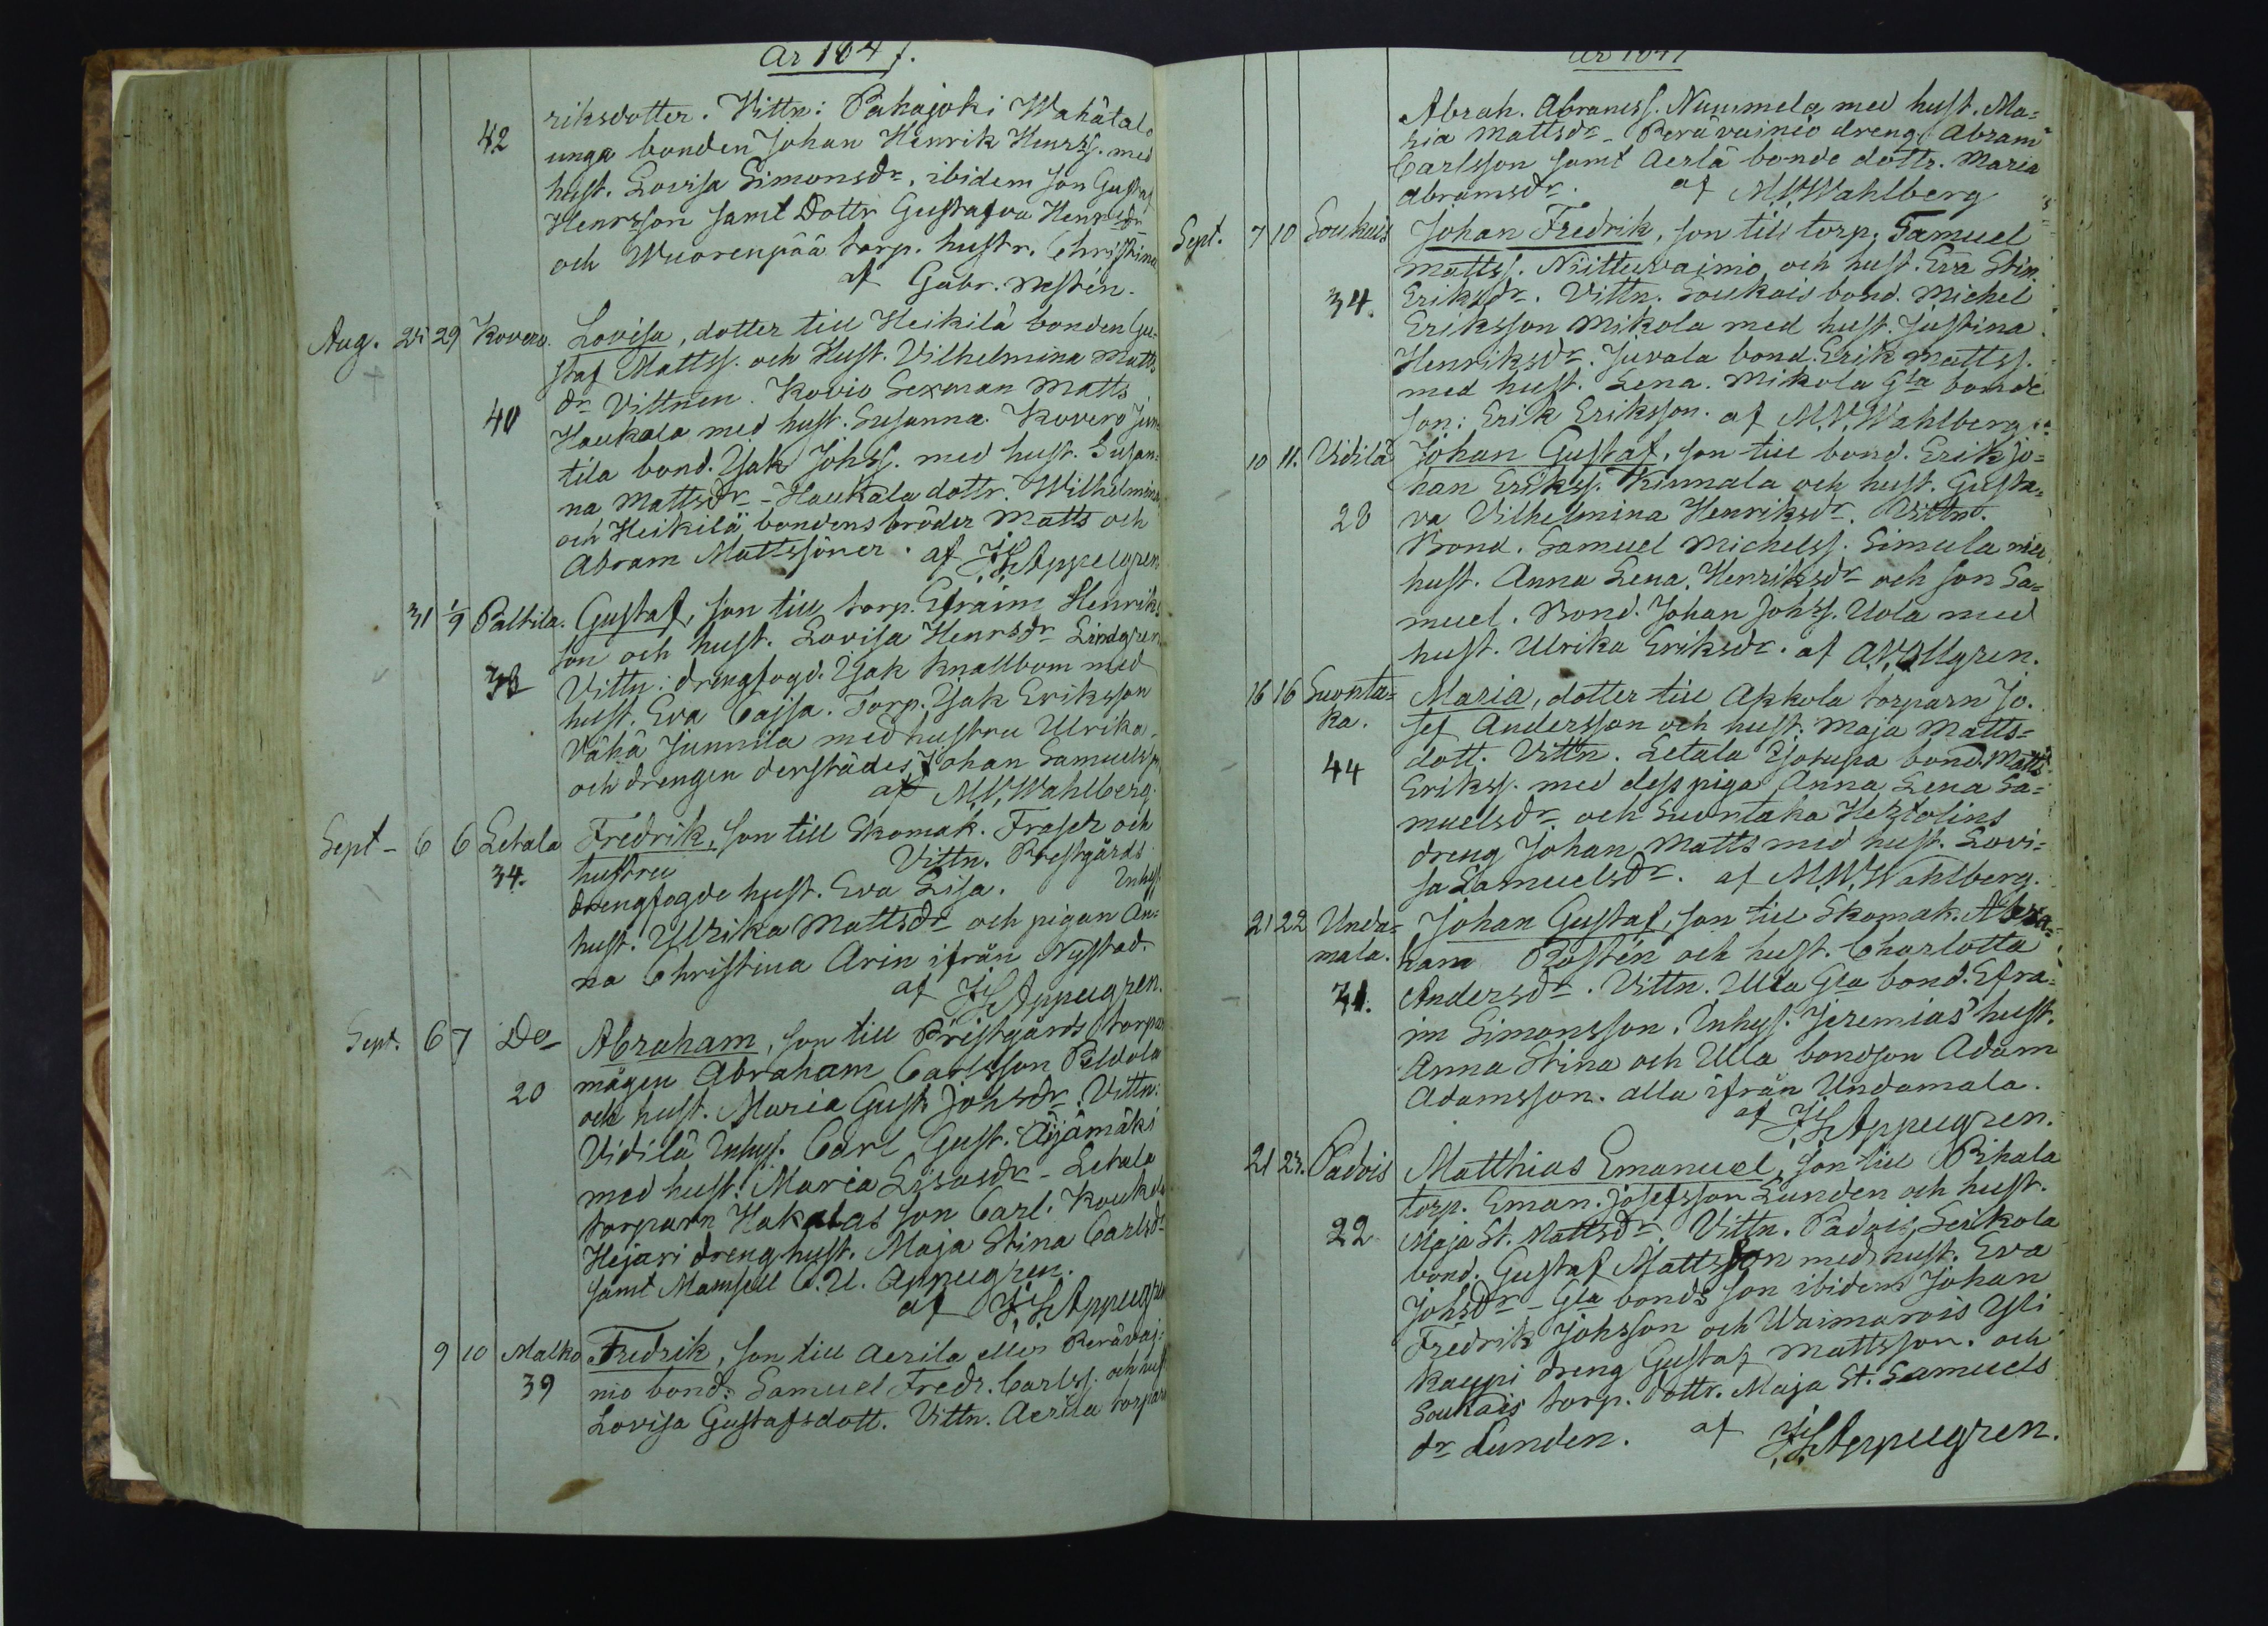 År 1847.
riksdotter. Vittn: Pahajoki Wahätalo
42 unga bonden Johan Henrik Henrss. med
hust. Lovisa Simonsdr, ibidem son Gustaf
Henrsson samt Dottr Gustafva Henrsdr
och Wuorenpää torp. hustr. Christina
af Gabr. Mestén.
Aug. 25 29 Kovero. Lovisa, dotter till Heikilä bonden Gu-
staf Mattss. och Hust. Vilhelmina Matts
dr Vittnen. Kovio Sexman Matts
40 Haukala med hust. Susanna. Kovero Jun
tila bond. Isak Johss. med hust. Susan-
na Mattsdr - Haukala dottr. Wilhelmina
och Heikilä bondens bröder Matts och
Abram Mattssöner. af Appelgren
31 1/9 Paltila. Gustaf, son till torp. Efraim Henriks
son och hust. Lovisa Henrsdr Lindgren
38 Vittn: drengfogd. Isak Knallbom med
hust. Eva Cajsa. Torp. Isak Eriksson
Vähä Junnila med hustru Ulrika
och drengen derstädes Johan Samuelss
af M.W.Wahlberg.
Sept - 6 6 Letala Fredrik, son till Skomak. Fraser och
34. hustru Vittn. Prestgårds
drengfogde hust. Eva Lisa. Inhys
hust. Ulrika Mattsdr och pigan An-
na Christina Arin ifrån Nystad.
af Appelgren.
Sept. 6 7 Do Abraham, son till Prestgårds torpar
20 mågen Abraham Carlsson Peldola
och hust. Maria Gust. Johsdr. Vittn:
Vidilä Inhys. Carl Gust. Äijämäki
med hust. Maria Lisasdr - Letala
torparn Hakalas son Carl. Kouki
Hejari dreng hust. Maja Stina Carlsdr
samt Mamsell C. U. Appelgren.
af Appelgren
9 10 Malko Fredrik, son till Aerila eller Perävai-
39 nio bond. Samuel Fredr. Carlss. och hust
Lovisa Gustafsdott. Vittn. Aerila torpar
År 1847
Abrah. Abramss. Nummela med hust. Ma-
ria Mattsdr - Perävainio dreng Abram
Carlsson samt Aerlä bonde dottr. Maria
Abramsdr. af M.W.Wahlberg
Sept. 7 10 Soukais Johan Fredrik, son till torp. Samuel
Mattss. Niittuvainio och hust. Eva Stin.
34. Eriksdr. Vittn. Soukais bond. Michel
Eriksson Mikola med hust. Justina
Henriksdr. Juvala bond. Erik Mattss.
med hust. Lena. Mikola Gla bonde
son: Erik Eriksson. af M.W.Wahlberg
10 11. Vidilä Johan Gustaf, son till bond. Erik Jo-
han Erikss. Kinnala och hust. Gusta-
28 va Vilhelmina Henriksdr. Vittn.
Bond. Samuel Michelss. Simula med
hust. Anna Lena Henriksdr och son Sa-
muel. Bond. Johan Johss. Uola med
hust. Ulrika Eriksdr. af A.W.Ollgren.
16 16 Suonta- Maria, dotter till Apkola torparn Jo-
ka. sef Andersson och hust. Maja Matts-
dott. Vittn. Letala Isotupa bond. Matts
44 Erikss. med dess piga Anna Lena Sa-
muelsdr och Suontaka Hertolins
dreng Johan Matts med hust. Lovi-
sa Samuelsdr. af M.W.Wahlberg.
21 22 Unda- Johan Gustaf, son till Skomak. Abra-
mala. ham Rostén och hust. Charlotta
31. Andersdr. Vittn. Ulla Gla bond. Efra-
im Simonsson. Inhys. Jeremias' hust.
Anna Stina och Ulla bondson Adam
Adamsson. alla ifrån Undamala.
af Appelgren.
21 23. Padois Matthias Emanuel, son till Pihala
torp. Eman. Josefsson Lunden och hust.
22 Maja St. Mattsdr. Vittn. Padois Seikola
bond. Gustaf Mattsson med hust. Eva
Johsdr - Gla bonds son ibidem Johan
Fredrik Johsson och Waimarois Yli
kauppi dreng Gustaf Mattsson. och
Soukais torp. dottr. Maja St. Samuels
dr Lunden. af Appelgren.